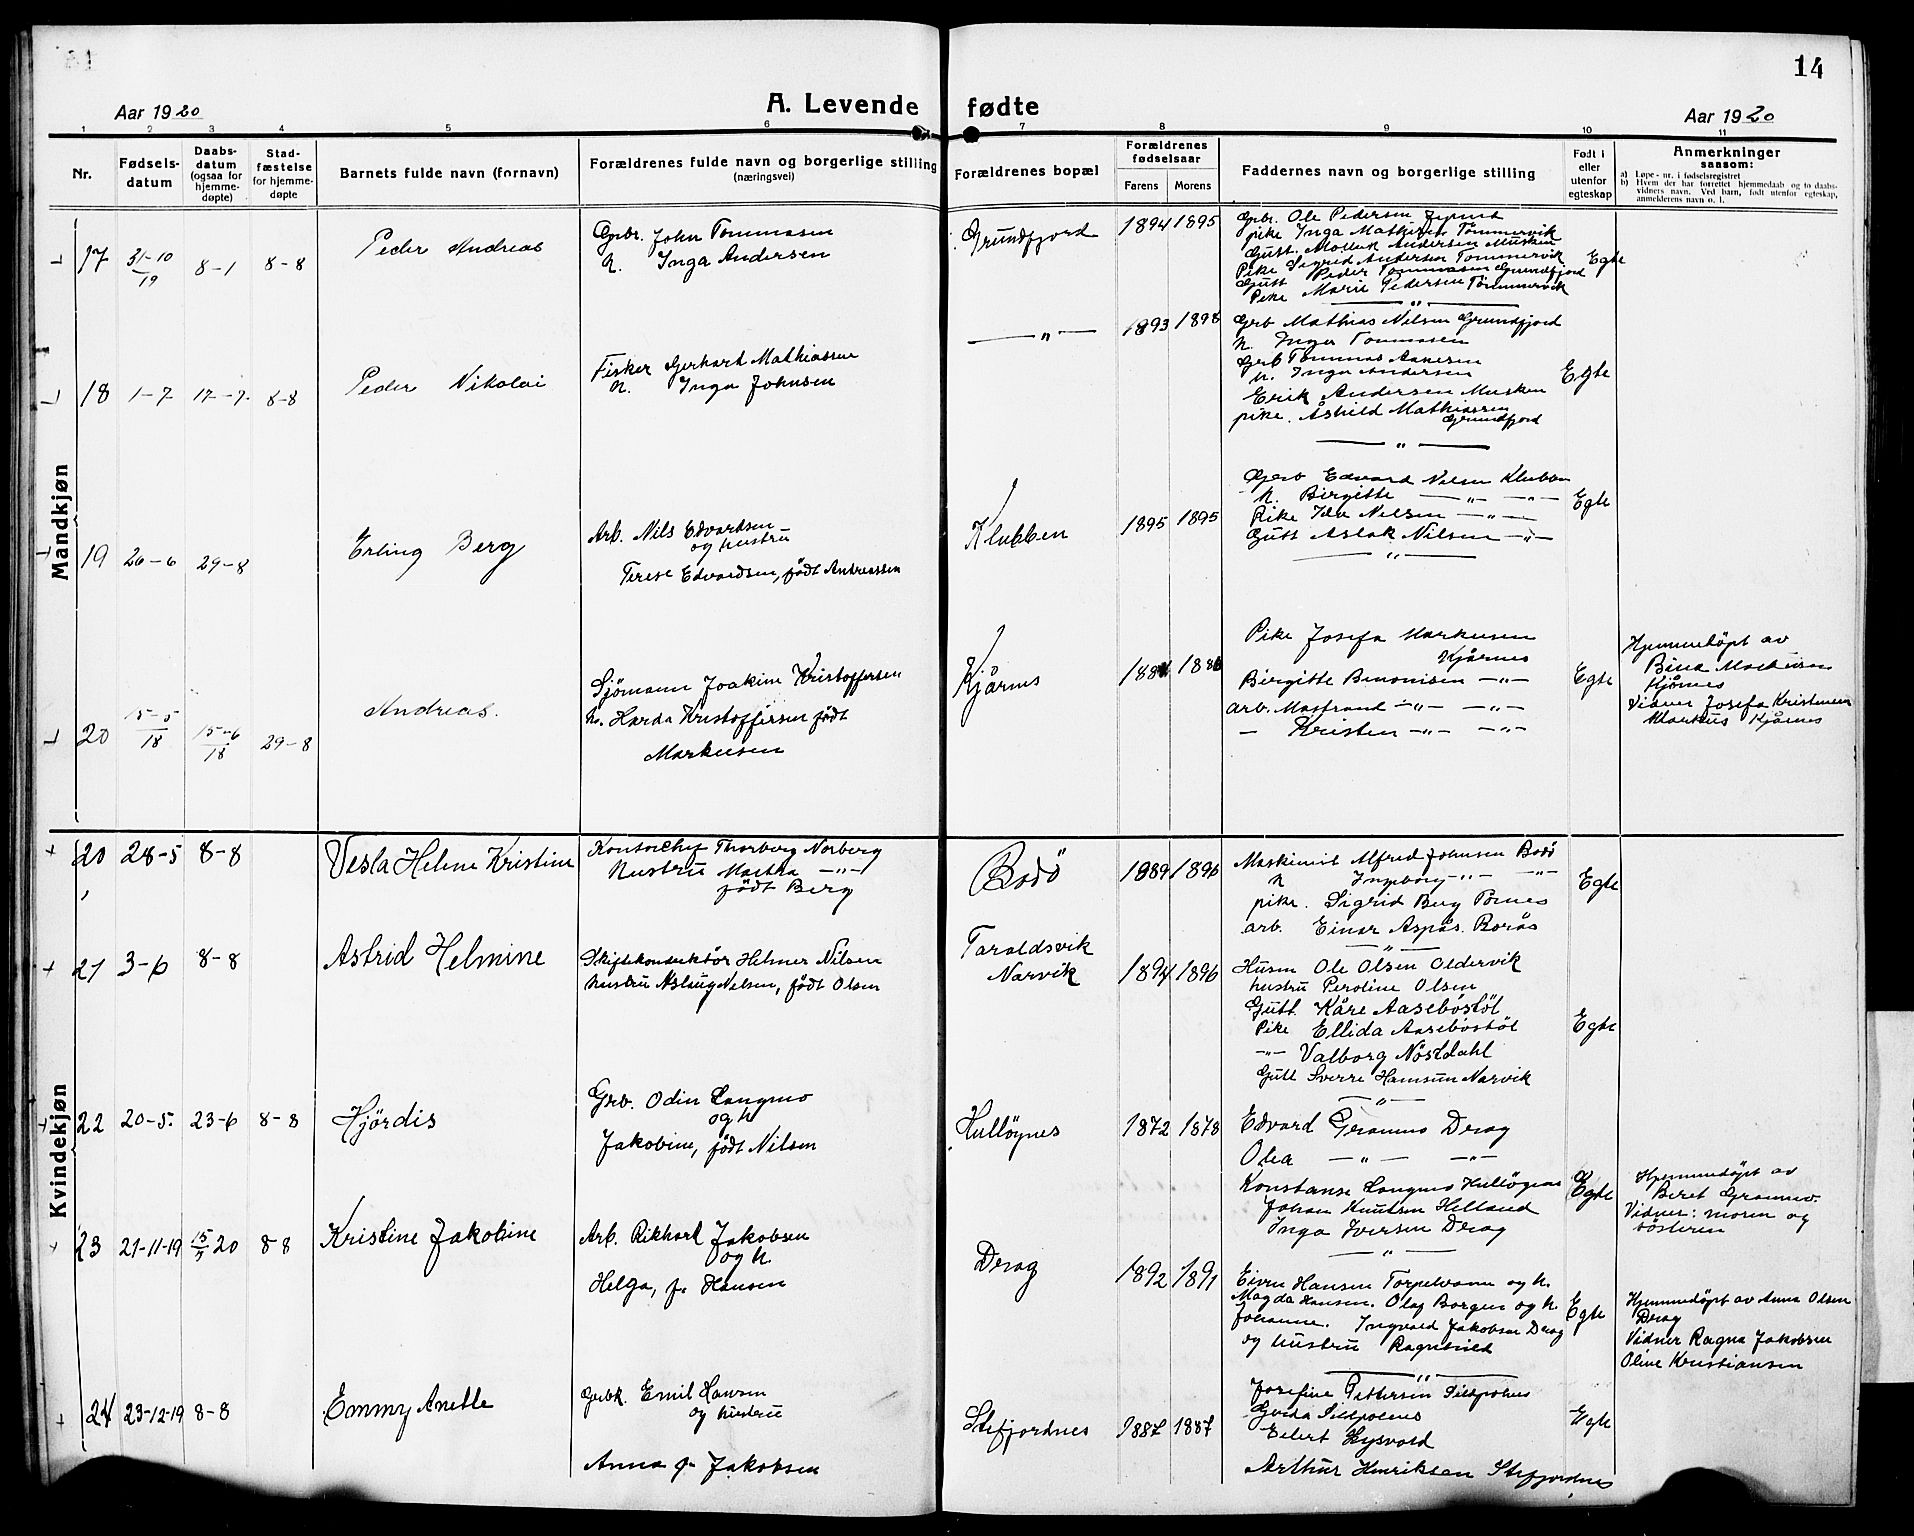 14
Aar 1920
A. Levende fødte
Aar 1920
1 2 3 4 5 6 7 8 9 10 11
Nr.
Fødsels-
datum
Daabs-
datum
(ogsaa for
hjemme-
døpte)
Stad-
fæstelse
for hjemme-
døpte
Barnets fulde navn (fornavn)
Forældrenes fulde navn og borgerlige stilling
(næringsvei)
Forældrenes bopæl
Forældrenes
fødselsaar
Farens Morens
Faddernes navn og borgerlige stilling
Født i
eller
utenfor
egteskap
Anmerkninger
saasom:
a) Løpe-nr. i fødselsregistret
b) Hvem der har forrettet hjemmedaab og to daabs-
vidners navn. Ved barn, født utenfor egteskap,
anmelderens navn o. l.
Mandkjøn
17 31-10/19 8-1 8-8 Peder Andreas
Gbr. John Tommasen
h. Inga Andersen
Grundfjord 1894 1895
Gbr. Ole Pedersen
pike Inga Mathisen Tømmervik
Gutt. Andersen Musken
Pike Sigrid Andersen Tømmervik
Gutt Peder Tommasen Grundfjord
Pike Marie Pedersen Tømmervik
Egte
18 1-7 17-7 8-8 Peder Nikolai
Fisker Gerhart Mathiassen
h. Inga Johnsen
— " — 1893 1898
Grb Mathias Nilsen Grundfjord
h. Inger Tommasen
Grb Tommas Aanesen
h. Inga Andersen
Erik Andersen Musken
pike. Åshild Mathiassen
Grundfjord
Egte
19 26-6 29-8 Erling Berg
Arb. Nils Edvardsen
og hustru
Terese Edvardsen, født Andreassen
Klubben 1895 1895
Gbr Edvard Nilsen Klubben
h. Birgitte —"— —"—
Pike Ida Nilsen —"—
Gutt Aslak Nilsen —"—
Egte
20 15-5/18 15-6/18 29-8 Andreas.
Sjömann Joakim Kristoffersen
h. Harda Kristoffersen født
Markusen
Kjårnes 1886
Pike Josefa Markusen
Kjårnes
Birgitte Benonisen —"—
arb. Mastrand —"— —"—
— Kristen —"— —"—
Egte
Hjemmedöpt av
Bina Markusen
Kjårnes
Vidner Josefa Kristensen
Markus Kjårnes
Kvindekjøn
20 28-5 8-8 Vesla Helene Kristine
Kontorchef Thorberg Norberg
Hustru Martha —"—
født Berg
Bodö 1889 1896
Maskinist Alfred Johnsen Bodö
h Ingeborg —"— —"—
pike. Sigrid Berg
arb. Einar Aspås. Borås
Egte
21 3-6 8-8 Astrid Helmine
Skiftekonduktör Helmer Nilsen
hustru Aslaug Nilsen, født Olsen
Taraldsvik
Narvik 1894 1896
Husm Ole Olsen Oldervik
hustru Peroline Olsen
Gutt Kåre Aasebøstøl
Pike Ellida Aasebøstøl
—"— Valborg Nöstdahl
Gutt Sverre Hamsun Narvik
Egte
22 20-5. 23-6 8-8 Hjördis
Grb. Odin Langmo
og h
Jakobine, født Nilsen
Hullöynes 1872 1878
Edvard Grønmo Drag
Olea —"— —"—
Konstanse Langmo
Johan Knutsen Helland
Inga Iversen Drag
Egte
Hjemmedöpt av
Beret Grønmo.
Vidner: moren og
søsteren
23 21-11-19 15/7 20 8-8 Kristine Jakobine
Arb. Rikhart Jakobsen
og h.
Helga, f. Hansen
Drag 1892 1891
Hansen og h.
Magda Hansen. Olaf Borgen og h.
Johanne. Ingvald Jakobsen Drag
og hustru Ragnhild
Egte
Hjemmedöpt av Anna Olsen
Drag
Vidner Ragna Jakobsen
Oline Kristiansen
24 23-12-19 8-8 Emmy Anette
Emil Hansen
og hustru
Anna f. Jakobsen
Stefjordnes 1887 1887
Josefine Pettersen
Eilert Hysvold
Arthur Henriksen Stefjordnes
Egte